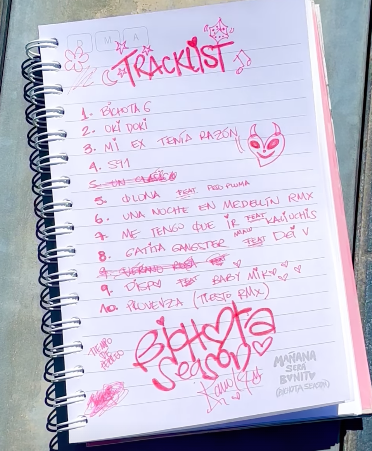 D M A
TRACKLIST
1. BICHOTA G
2. OKI DOKI
3. MI EX TENÍA RAZÓN
4. S91
5. UN CLÁSICO
5. QLONA FEAT. PESO PLUMA
6. UNA NOCHE EN MEDELLÍN RMX
7. ME TENGO QUE IR FEAT KALIUCHIS
8. GATITA GANGSTER FEAT DEI V
9. VERANO ROSA
9. DISPO FEAT BABY MIKO
10. PROVENZA (TIESTO RMX)
BICHOTA
SEASON
MAÑANA
SERÁ
BONITO
(BICHOTA SEASON)